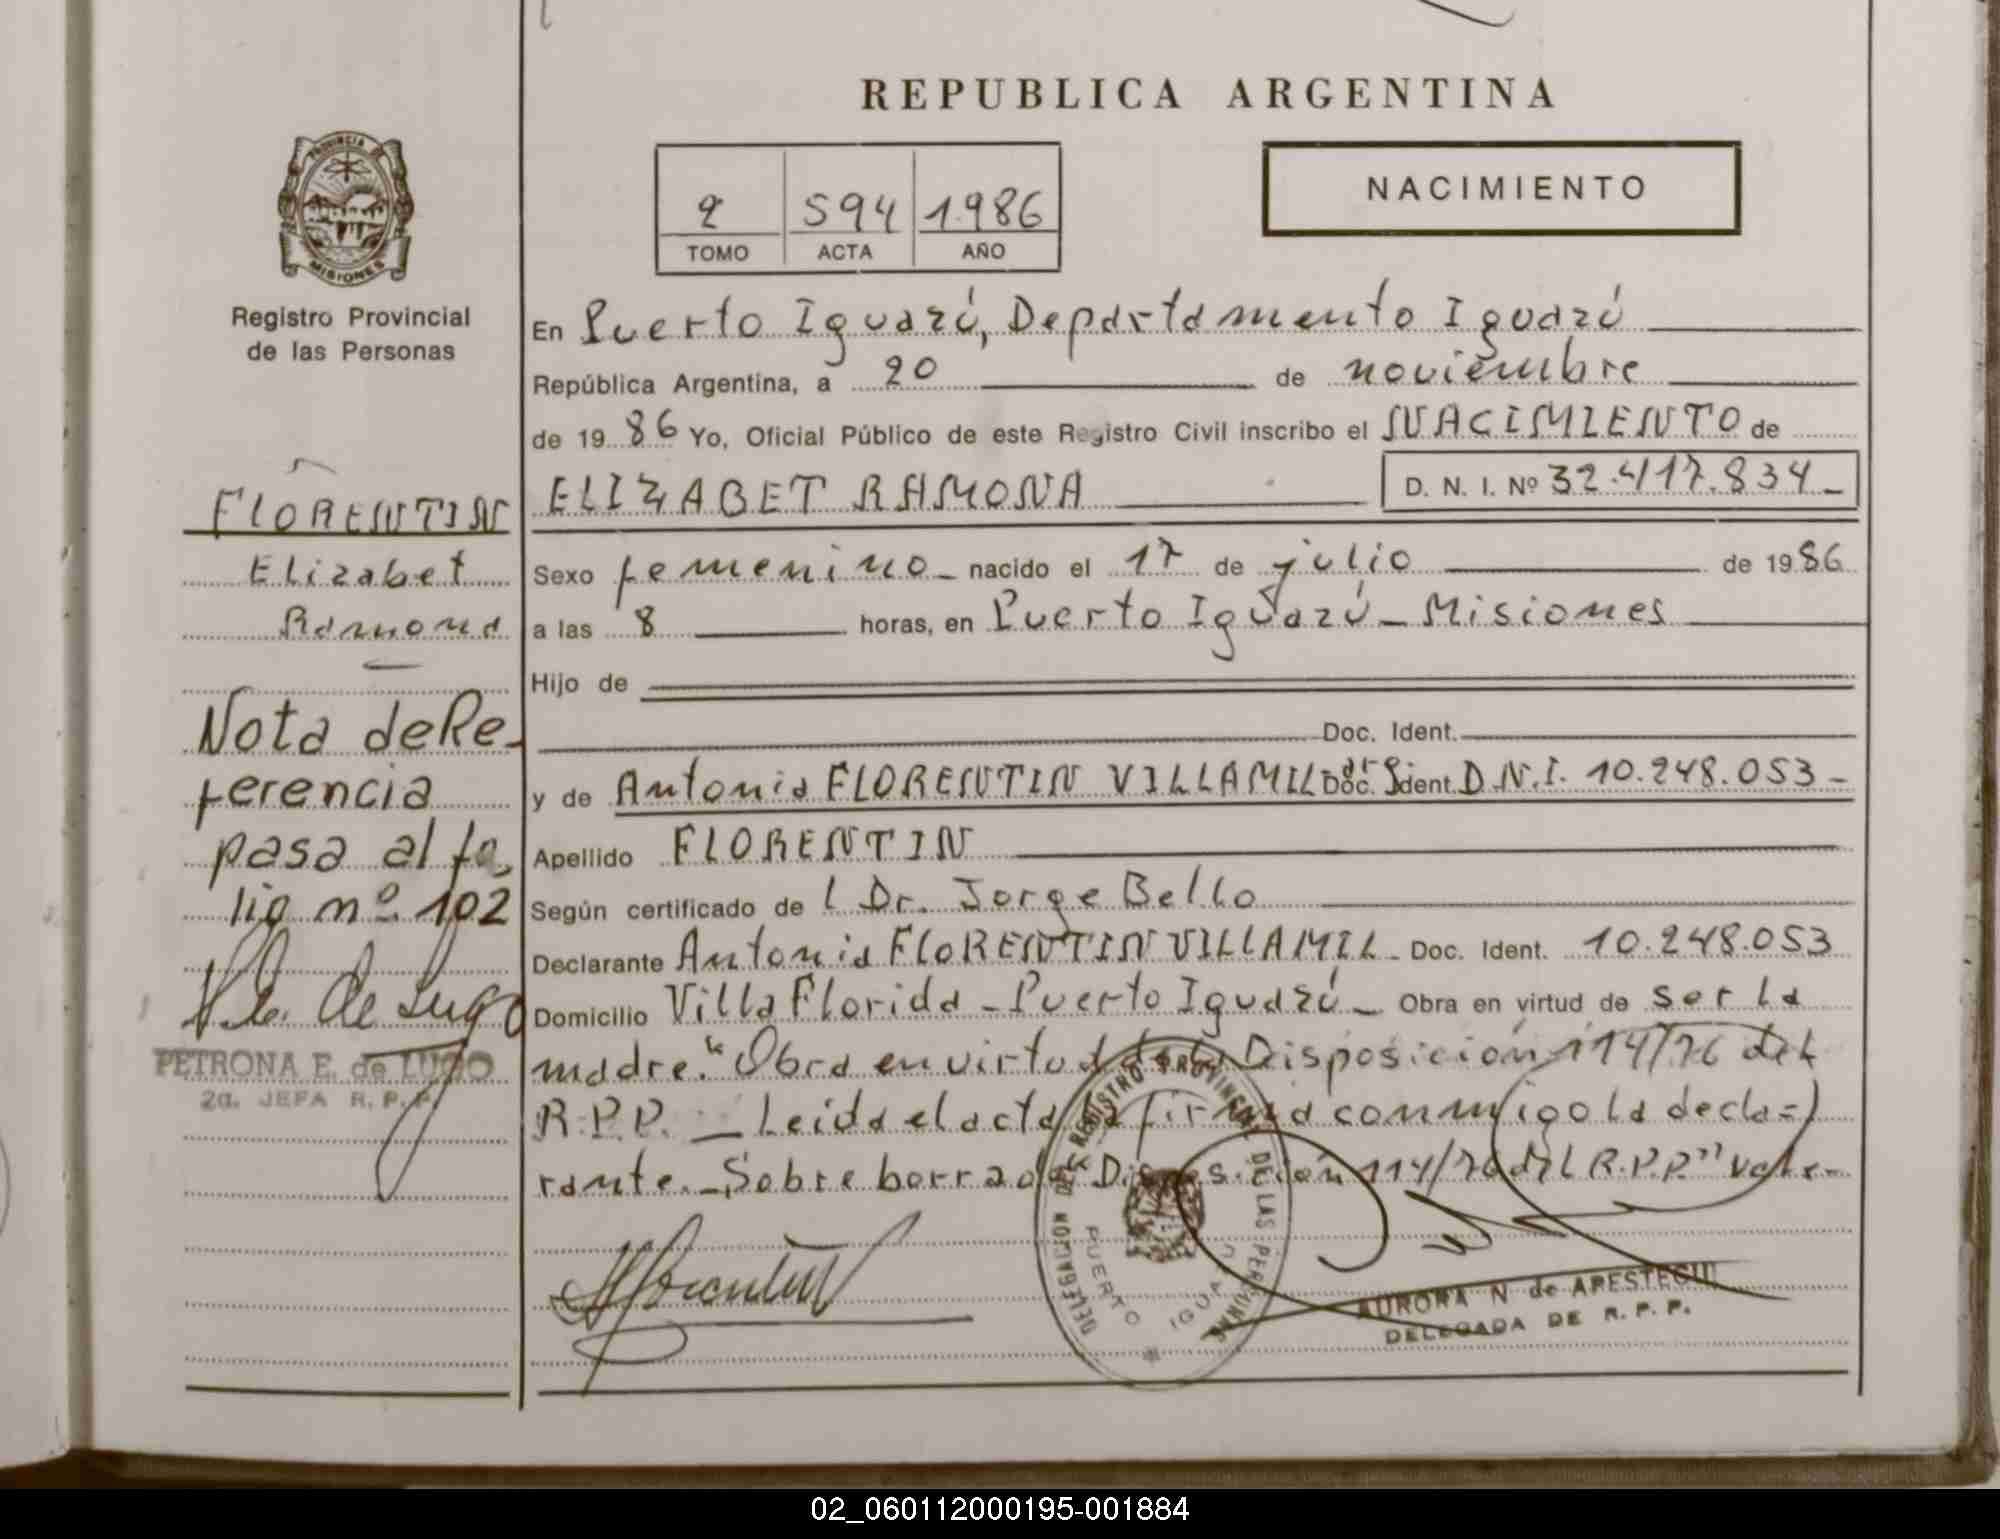 REPUBLICA ARGENTINA
PROVINCIA DE
MISIONES
Registro Provincial
de las Personas
2 594 1986
TOMO ACTA AÑO
NACIMIENTO
En Puerto Iguazú, Departamento Iguazú
República Argentina, a 20 de noviembre
de 1986 Yo, Oficial Público de este Registro Civil inscribo el NACIMIENTO de
ELIZABET RAMONA D. N. I. Nº 32.417.834
Sexo femenino nacido el 17 de julio de 1986
a las 8 horas, en Puerto Iguazú - Misiones
Hijo de
Doc. Ident.
y de Antonia FLORENTIN VILLAMIL Doc. Ident. D.N.I. 10.248.053 -
Apellido FLORENTIN
Según certificado de l Dr. Jorge Bello
Declarante Antonia FLORENTIN VILLAMIL - Doc. Ident. 10.248.053
Domicilio Villa Florida - Puerto Iguazú - Obra en virtud de ser la
madre. "Obra en virtud de la Disposición 114/76 del
R.P.P. _ Leida el acta la firma conmigo la decla=
rante. - Sobre borrado: Disposición 114/76 del R.P.P." Vale -
FLORENTIN
Elizabet
Ramona
Nota de Re-
ferencia
pasa al fo,
lio nº 102
PETRONA E. de LUGO
2a. JEFA R. P. P.
DELEGACION DEL REGISTRO PROVINCIAL DE LAS PERSONAS
PUERTO IGUAZU
AURORA N de APESTEGUI
DELEGADA DE R. P. P.
02_060112000195-001884